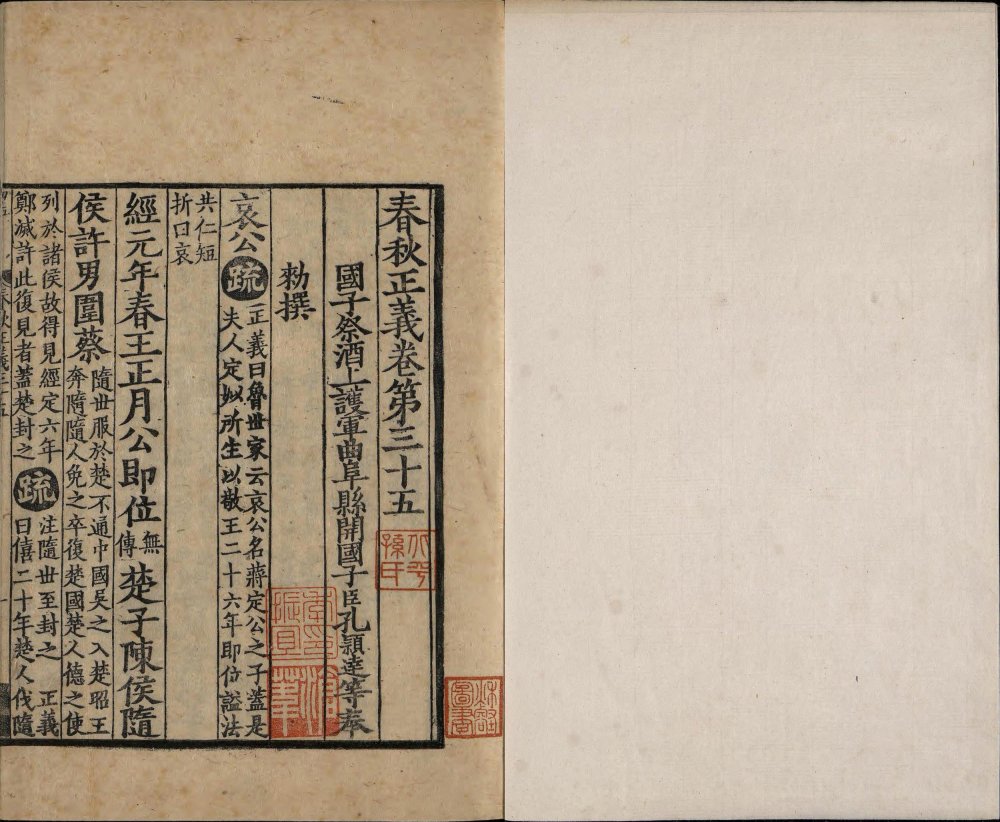 春秋正義卷第三十五
國子祭酒上護軍曲阜縣開國子臣孔穎達等奉
勑撰
哀公疏正義曰魯世家云哀公名蔣定公之子蓋是
夫人定姒所生以敬王二十六年即位謚法
共仁短
折曰哀
經元年春王正月公即位無
傳楚子陳侯隨
侯許男圍蔡隨世服於楚不通中國吳之入楚昭王
奔隨隨人免之卒復楚國楚人德之使
列於諸侯故得見經定六年
鄭滅許此復見者蓋楚封之疏注隨世至封之 正義
曰僖二十年楚人伐隨
孫氏